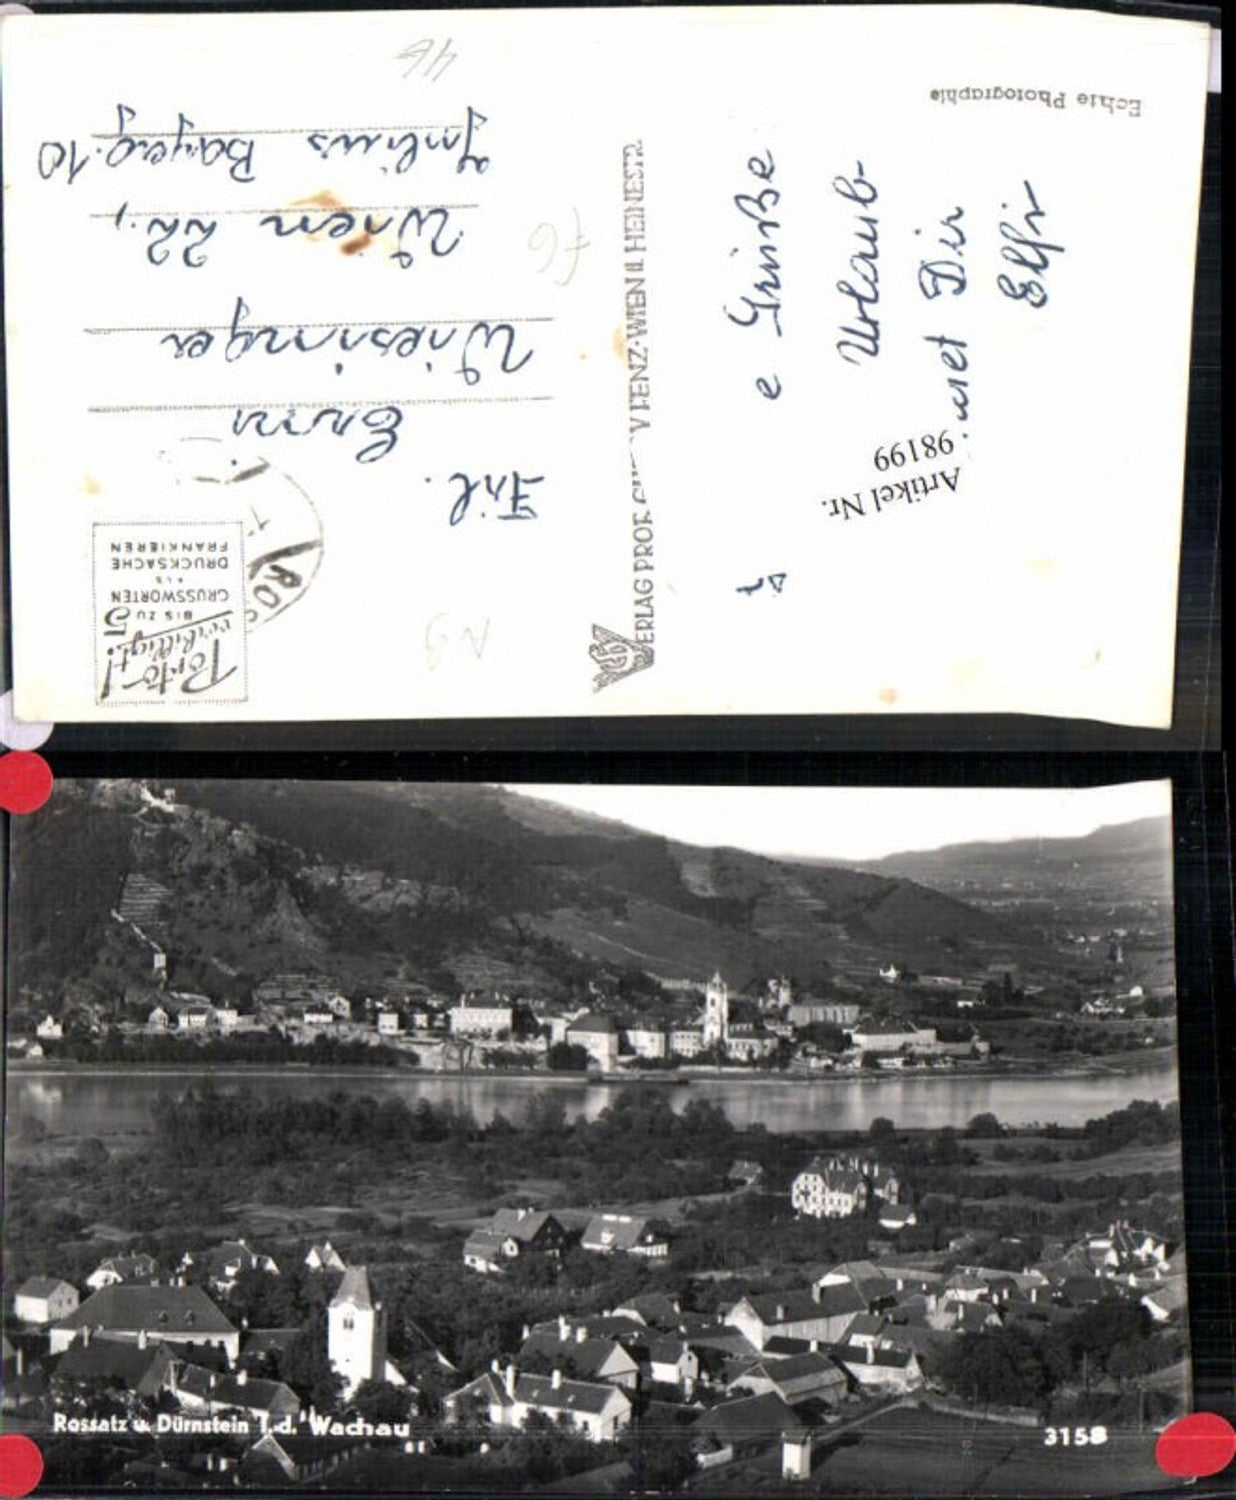 Echte Photographie
e Grüße
Urlaub-
net Dir
Elfi
Artikel Nr.
98199
VERLAG PROF.
LENZ·WIEN II. HEINESTR.
Porto!
verbilligt!
BIS ZU 5
GRUSSWORTEN
ALS
DRUCKSACHE
FRANKIEREN
ROS
Frl.
Erna
Wiesinger
Wien 22.,
Julius Payerg. 10
Rossatz u. Dürnstein i.d. Wachau
3158